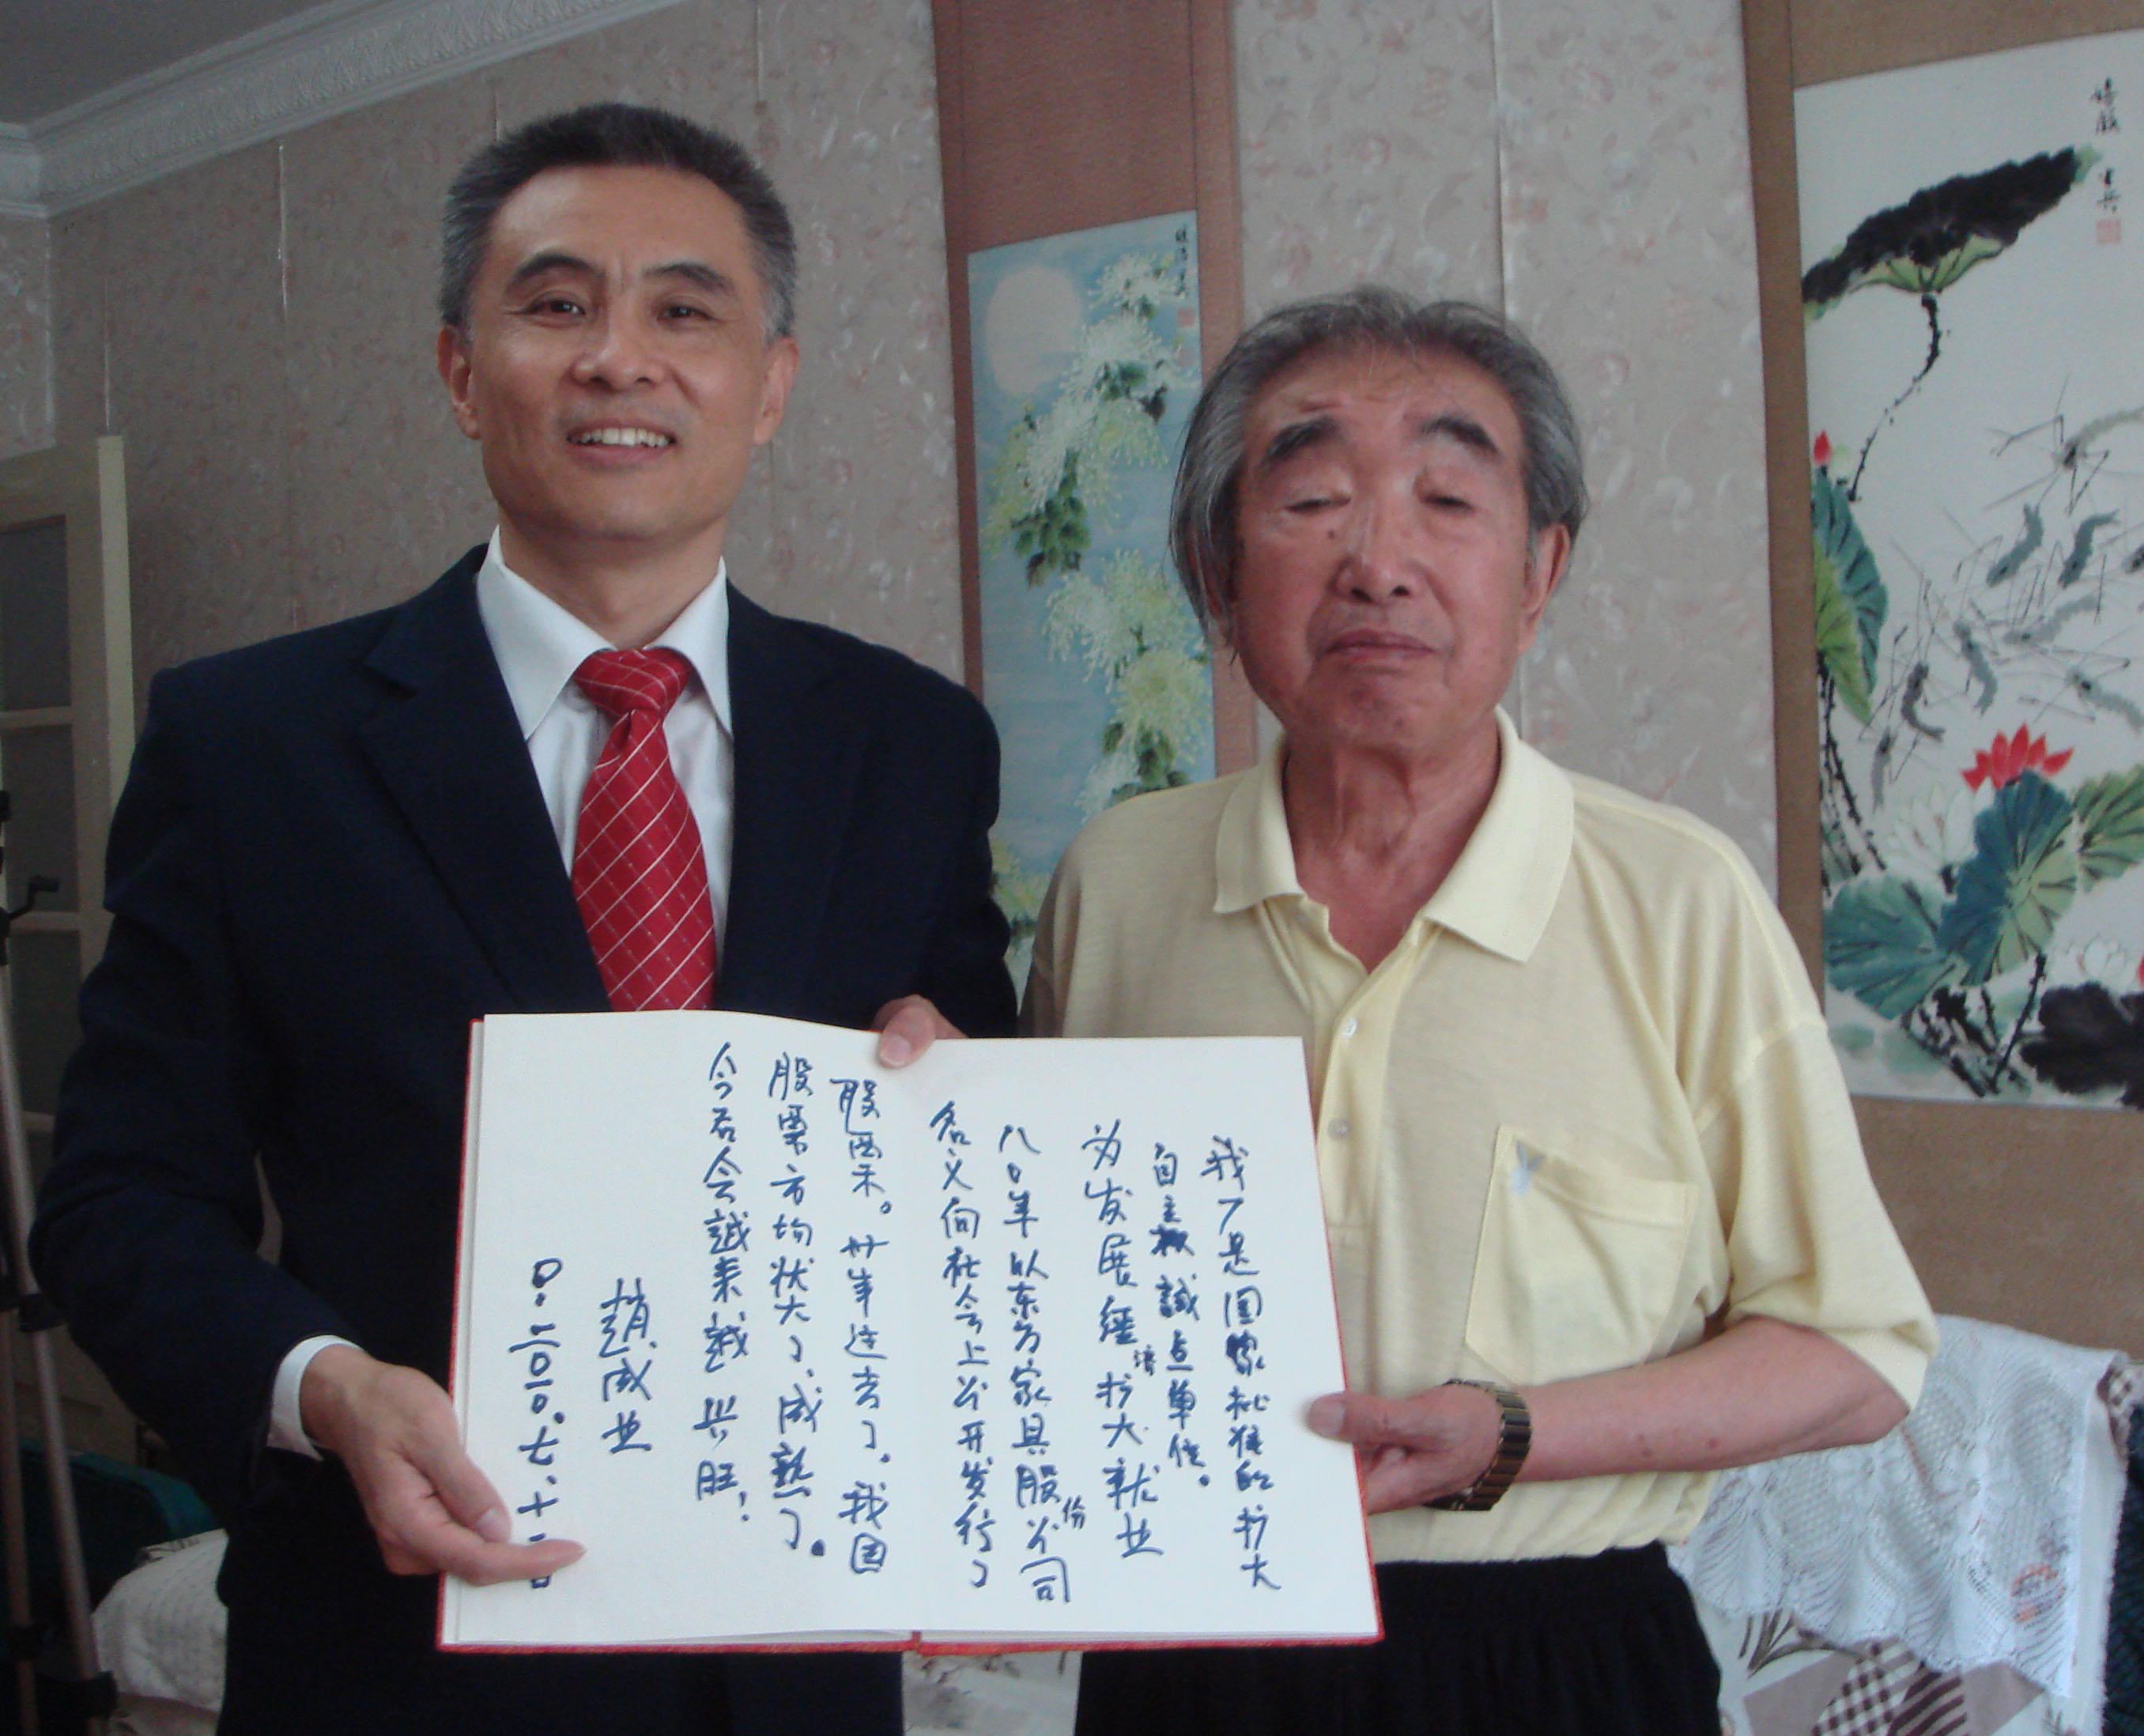 我厂是国家批准的扩大
自主权試点单位。
为发展经济扩大就业
八0年以东方家具股份公司
名义向社会上公开发行了
股票。卅年过去了。我国
股票市场壮大了、成熟了。
今后会越来越兴旺！
趙成业
二00七.十一.